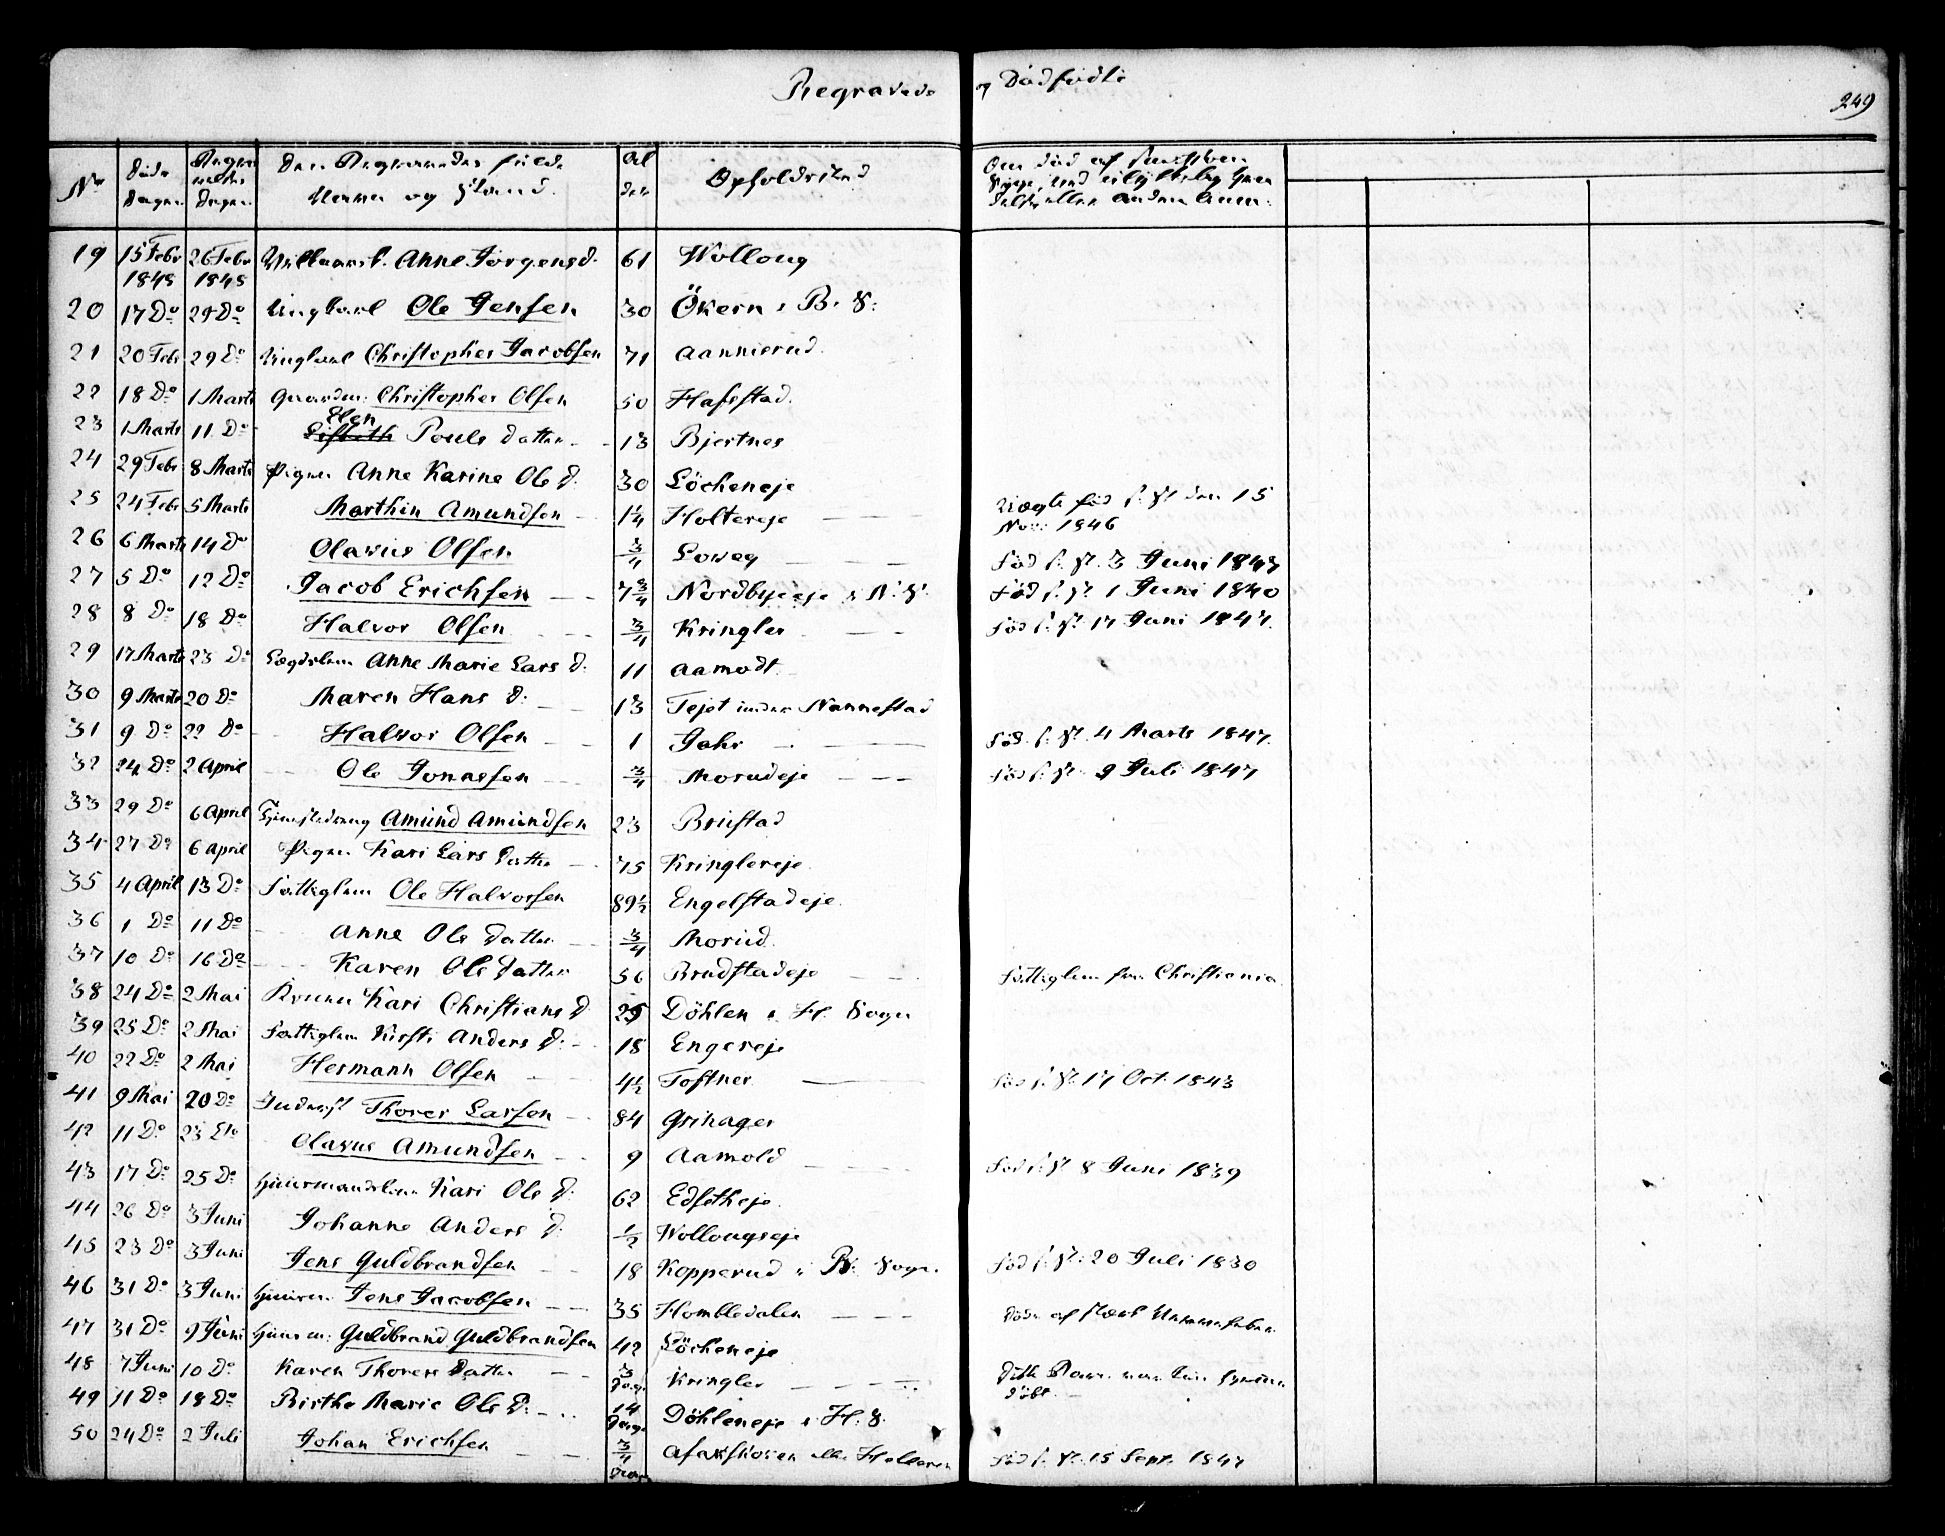 Begravede og Dødfødte
249
No Døds Dagen Begravelses Dagen Den Begravedes fulde Navn og Stand. Alder Opholdsted
19 15 Febr 1848 26 Febr 1848 Anne Jørgensd. 61 Wolloug
20 17 Do 29 Do Ungkarl Ole Jensen 30 Økern i B. S:
21 20 Febr 29 Do Ungkarl Christopher Jacobsen 71 Aannierud
22 18 Do 1 Marts Gaardm: Christopher Olsen 50 Hafstad.
23 1 Marts 11 Do Elen Lisbeth Pouls Datter 13 Bjertnes
24 29 Febr 8 Marts Pigen Anne Karine Ole D. 30 Löcheneje
25 24 Febr 5 Marts Marthin Amundsen 1 1/4 Holtereje Nov: 1846
26 6 Marts 14 Do Olavus Olsen 3/4 Loveg Föd h. St. 3 Juni 1847
27 5 Do 12 Do Jacob Erichsen 7 3/4 Nordbyeeje i N. S. Föd h. St. 1 Juni 1840
28 8 Do 18 Do Halvor Olsen 3/4 Kringler Föd h. St. 17 Juni 1847.
29 17 Marts 23 Do Lægdslem Anne Marie Lars D. 11 Aamodt
30 9 Marts 20 Do Maren Hans D. 13 Tejet under Nannestad
31 9 Do 22 Do Halvor Olsen 1 Jahr Föd. h. St. 4 Marts 1847.
32 24 Do 2 April Ole Jonnesen 3/4 Morudeje Föd h. St. 9 Juli 1847
33 29 Do 6 April Amund Amundsen 23 Brustad
34 27 Do 6 April Pigen Kari Lars Datter 75 Kringlereje
35 4 April 13 Do Fattiglem Ole Halvorsen 89 1/2 Engelstadeje.
36 1 Do 11 Do Anne Ole Datter 3/4 Morud.
37 10 Do 16 Do Karen Ole Datter 56 Brudstadeje Fattiglem fra Christiania
38 24 Do 2 Mai Konen Kari Christians D. 29 Döhlen i H. Sogn
39 25 Do 2 Mai Fattiglem Kirsti Anders D. 18 Engereje
40 22 Do 2 Mai Hermann Olsen 4 1/2 Toftner Föd h. St. 17 Oct. 1843
41 9 Mai 20 Do Inderst Thorer Larsen 84 Grinager
42 11 Do 23 Olavus Amundsen 9 Aamold Föd h. St. 8 Juni 1839
43 17 Do 25 Do Huusmandskone Kari Ole D. 62 Edsetheje.
44 26 Do 3 Juni Johanne Anders D. 1/2 Wollougseje
45 23 Do 3 Juni Jens Guldbrandsen 18 Kopperud i B. Sogn. Föd h. St. 20 Juli 1830
46 31 Do 3 Juni Huusm Jens Jacobsen 35 Hombledalen Døde af
47 31 Do 9 Juni Huusm: Guldbrand Guldbrandsen 42 Löcheneje
48 7 Juni 10 Do Karen Thorers Datter 3 Dage Kringler Dette Barn var kun hjemme döbt.
49 11 Do 18 Do Birthe Marie Ole D. 14 Dage Döhleneje i H. S.
50 24 Do 2 Juli Johan Erichsen 3/4 Föd h. St. 15 Sept. 1847